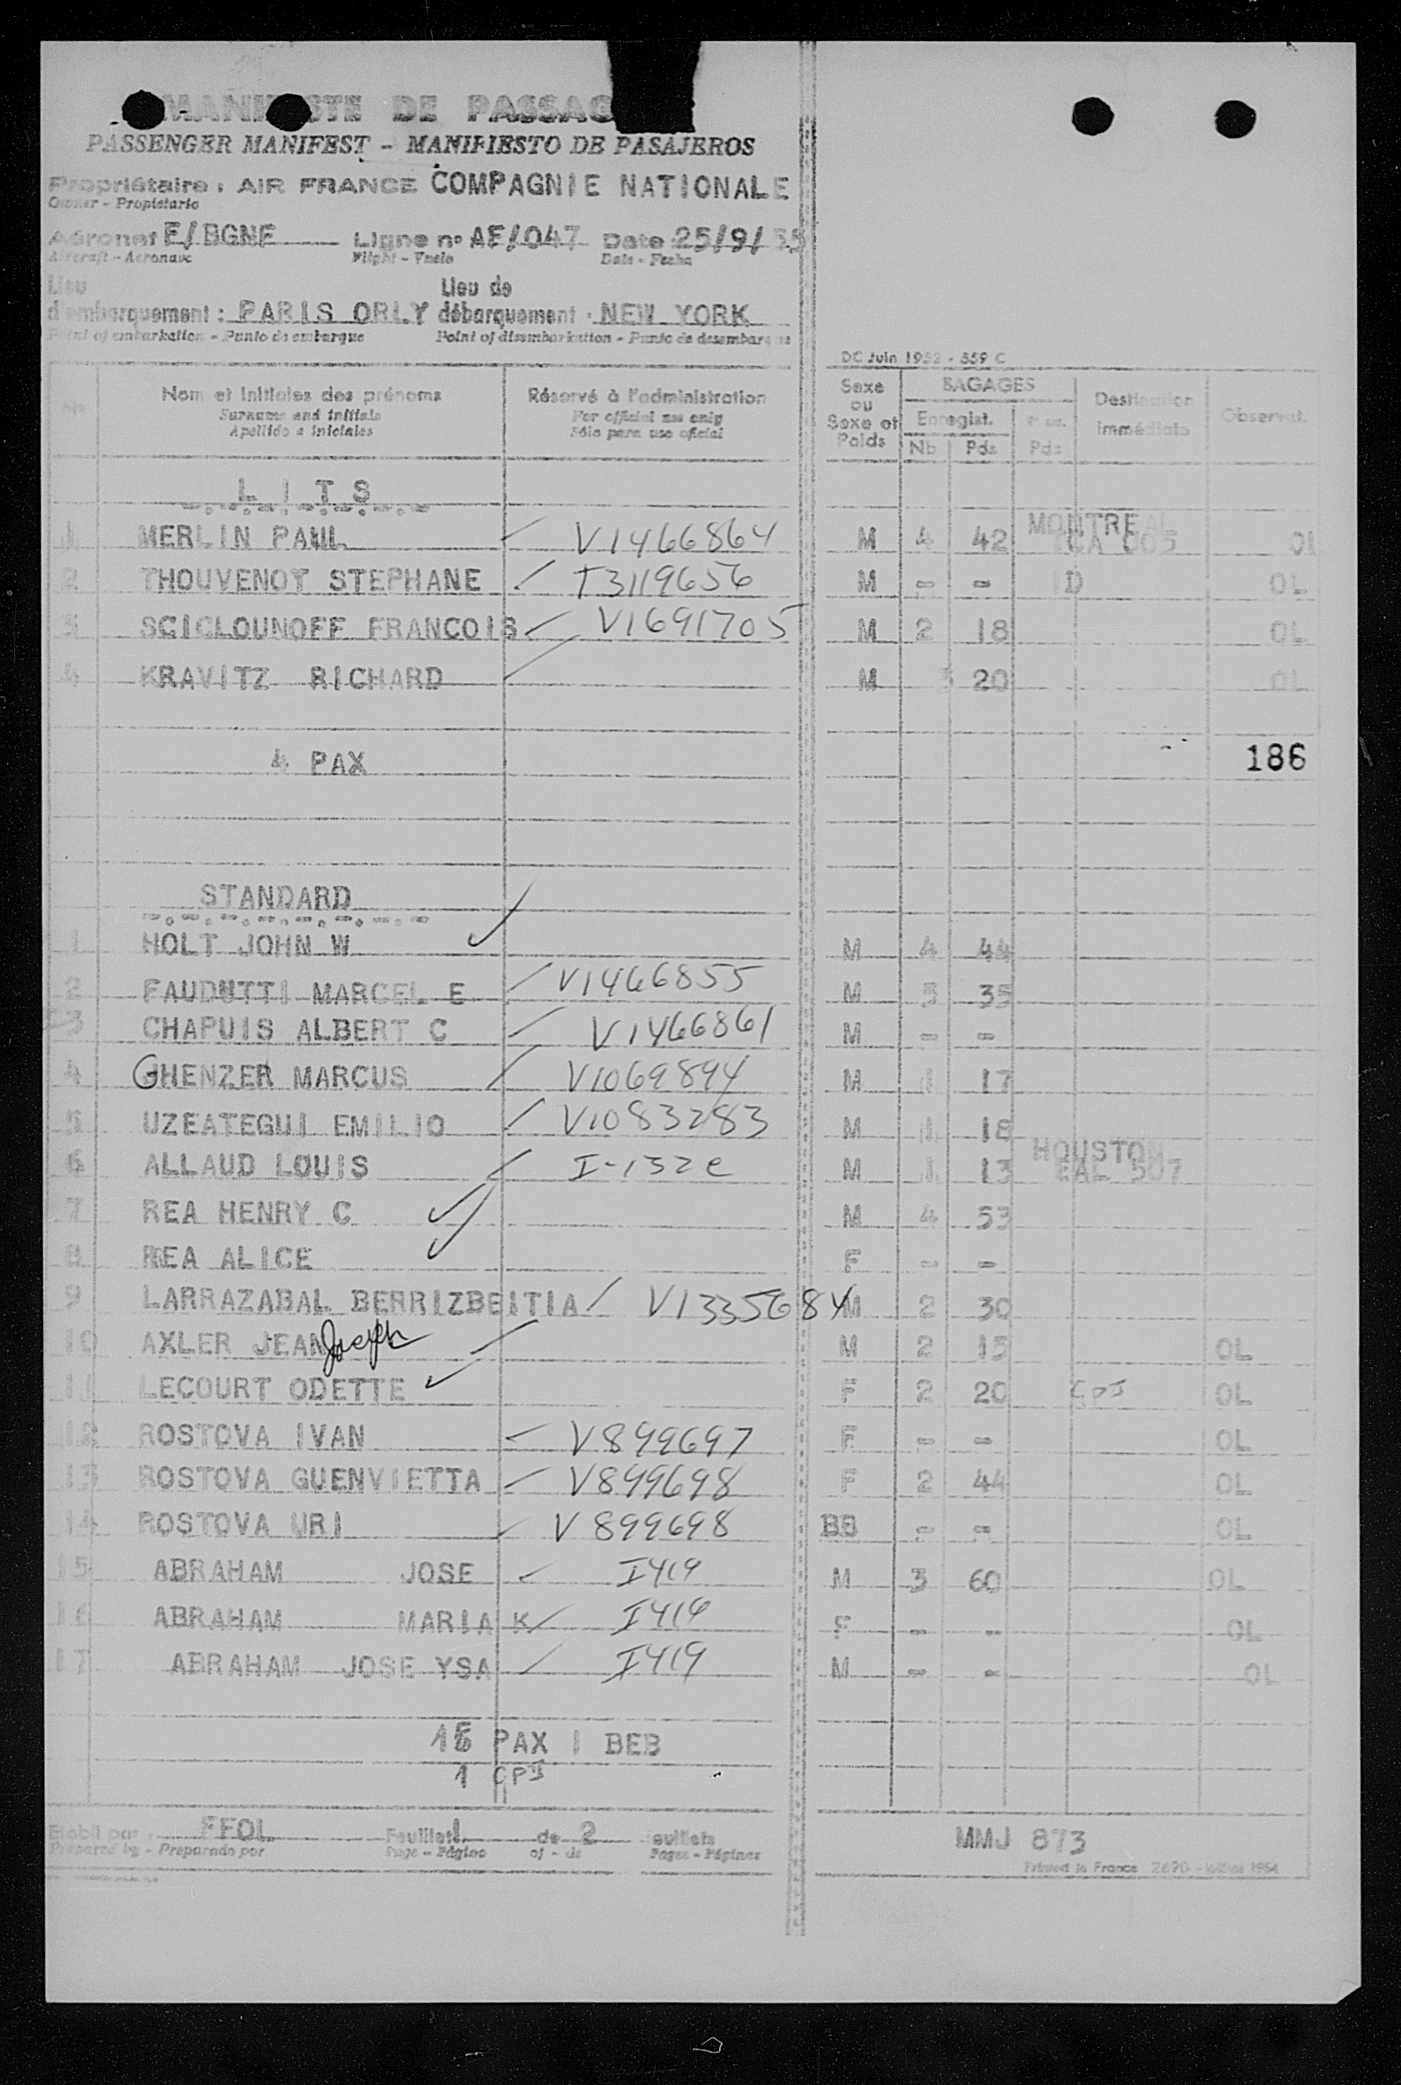 MANIFESTE DE PASSAG
PASSENGER MANIFEST - MANIFIESTO DE PASAJEROS
Propriétaire : AIR FRANCE COMPAGNIE NATIONALE
Owner - Propietario
Aéronef F/BGNF Ligne n° AF/047 Date 25/9/55
Aircraft - Aeronave Flight - Vuelo Date - Fecha
Lieu d'embarquement : PARIS ORLY Lieu de débarquement : NEW YORK
Point of embarkation - Punto de embarque Point of disembarkation - Punto de desembar
DC Juin 1952 - 559 C
No Nom et initiales des prénoms Réservé à l'administration Sexe ou Sexe et Poids BAGAGES Destination immédiate Observat.
Surname and initials For official use only Enregist.
Apellido e iniciales Sólo para uso oficial Nb Pds Pds
LITS
1 MERLIN PAUL V1466864 M 4 42 MONTREAL TCA 005 OL
2 THOUVENOT STEPHANE T3119656 M - - ID OL
3 SCICLOUNOFF FRANCOIS V1691705 M 2 18 OL
4 KRAVITZ RICHARD M 3 20 OL
4 PAX 186
STANDARD
1 HOLT JOHN W M 4 44
2 FAUDUTTI MARCEL E V1466855 M 3 35
3 CHAPUIS ALBERT C V1466861 M - -
4 GHENZER MARCUS V1069894 M 1 17
5 UZEATEGUI EMILIO V1083283 M 1 18
6 ALLAUD LOUIS I-132e M 1 13 HOUSTON EAL 507
7 REA HENRY C M 4 53
8 REA ALICE F - -
9 LARRAZABAL BERRIZBEITIA V1335684 M 2 30
10 AXLER JEAN Joseph M 2 15 OL
11 LECOURT ODETTE F 2 20 CPJ OL
12 ROSTOVA IVAN V899697 F - - OL
13 ROSTOVA GUENVIETTA V899698 F 2 44 OL
14 ROSTOVA URI V899698 BB - - OL
15 ABRAHAM JOSE I419 M 3 60 OL
16 ABRAHAM MARIA K I419 F - - OL
17 ABRAHAM JOSE YSA I419 M - - OL
15 PAX 1 BEB
1 CPJ
Etabli par : FFOL Feuillet 1 de 2 feuillets MMJ 873
Prepared by - Preparado por Page - Página of - de Pages - Páginas Printed in France